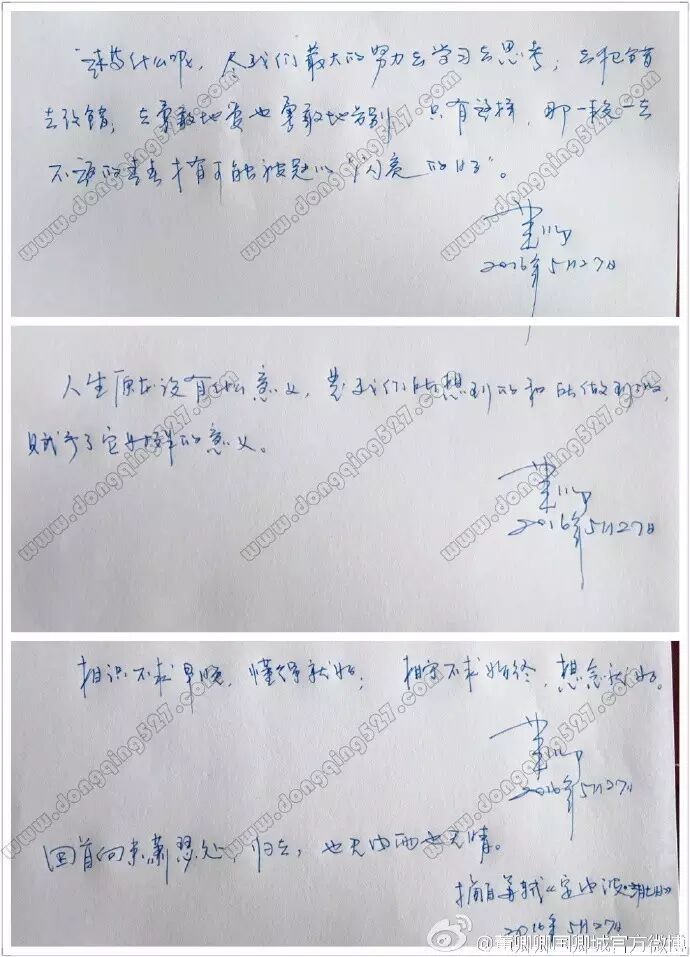 迷茫什么呢,尽我们最大的努力去学习去思考;去犯错
去改错;去勇敢地爱也勇敢地告别 只有这样,那一段一去
不返的青春才有可能被冠以“闪亮的日子”。
董卿
2016年5月27日
人生原本没有什么意义,是我们所想到的和所做到的,
赋予了它某种的意义。
董卿
2016年5月27日
相识不求早晚,懂得就好; 相守不求始终,想念就好。
董卿
2016年5月27日
回首向来萧瑟处 归去,也无风雨也无晴。
摘自苏轼《定风波
2016年5月27日
www.dongqing527.com
@董卿卿国卿城官方微博